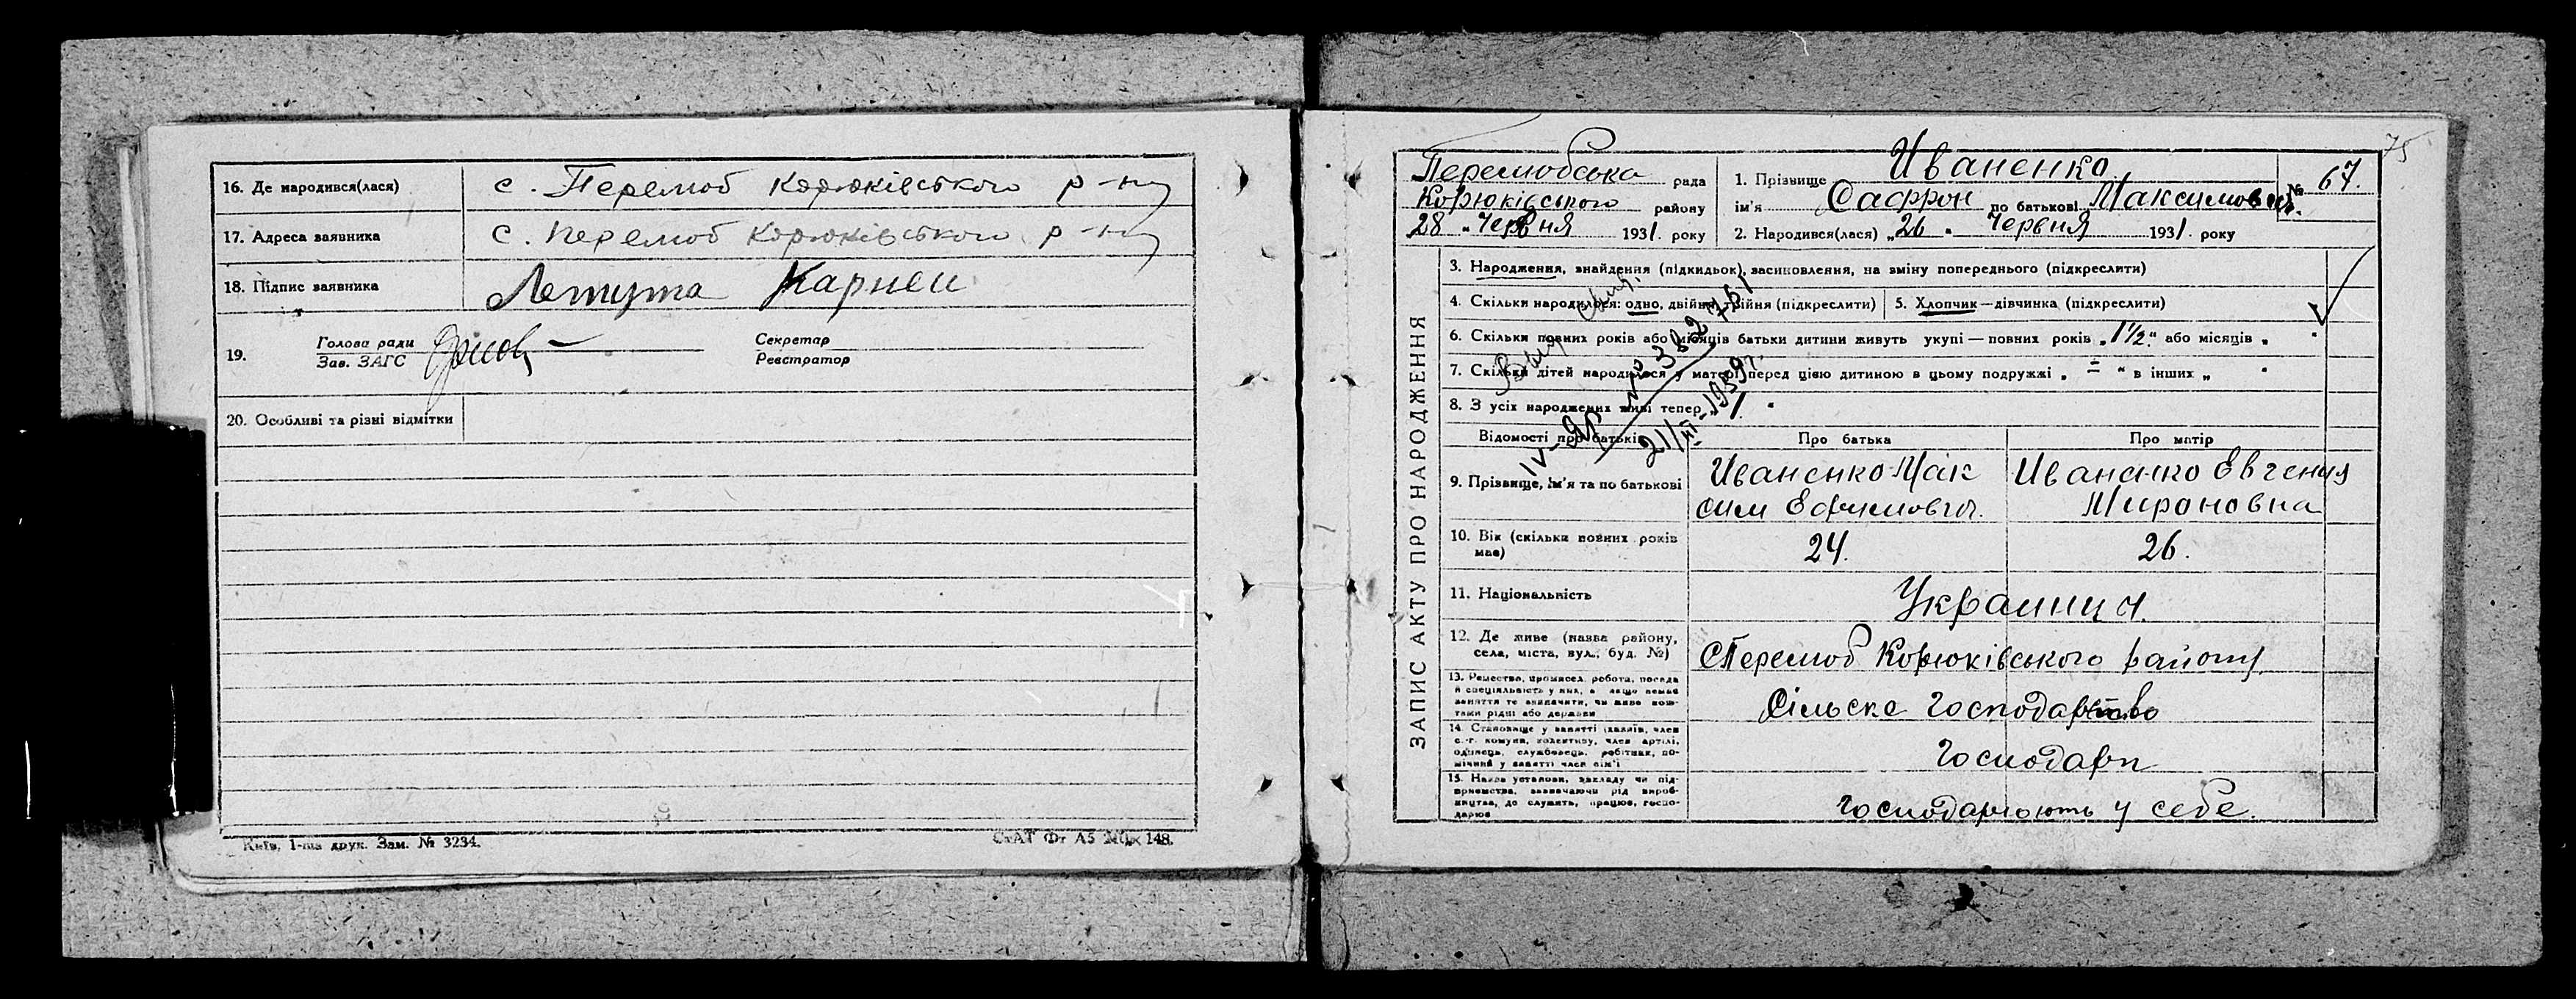 16. Де народився(лася) с. Перемоб Корюківського р-ну
17. Адреса заявника с. Перемоб Корюківського р-ну
18. Підпис заявника Летута Карней
19. Голова ради
Зав. ЗАГС
Секретар
Реєстратор
20. Особливі та різні відмітки
Київ, 1-ша друк. Зам. № 3234.
СтАТ Фт А5 148.
75
Перемобська рада
Корюківського району
28 „Червня 1931. року
1. Прізвище Иваненко
ім'я Сафрон по батькові Максимович.
2. Народився(лася) „26 „ Червня 1931. року
№ 67.
ЗАПИС АКТУ ПРО НАРОДЖЕННЯ
3. Народження, знайдення (підкидьок), засиновлення, на зміну попереднього (підкреслити)
4. Скільки народилося: одно, двійня, трійня (підкреслити) 5. Хлопчик—дівчинка (підкреслити)
6. Скільки повних років або місяців батьки дитини живуть укупі — повних років „1½“ або місяців „ “
7. Скільки дітей народилося у матері перед цією дитиною в цьому подружжі „ – “ в інших „ “
8. З усіх народжених живі тепер „1. “
21/III-1959р.
Відомості про батьків Про батька Про матір
9. Прізвище, ім'я та по батькові
Иваненко Мак
сим Ефимович.
Иваненко Евгения
Мироновна
10. Вік (скільки повних років
має)
24. 26.
11. Національність Украинці.
12. Де живе (назва району,
села, міста, вул., буд. №)
с Перемоб Корюківського району
13. Ремество, промисел, робота, посада
й спеціяльність у них, а якщо немає
заняття то визначити, чи живе кош-
тами рідні або держави
Сільске господарство
14. Становище у занятті (хазяїн, член
с.-г. комуни, колективу, член артілі,
одинець, службовець, робітник, по-
мічний у занятті член сім'ї
Господарі
15. Назва установи, закладу чи під-
приємства, зазначаючи рід вироб-
ництва, де служить, працює, госпо-
дарює
господарюють у себе.